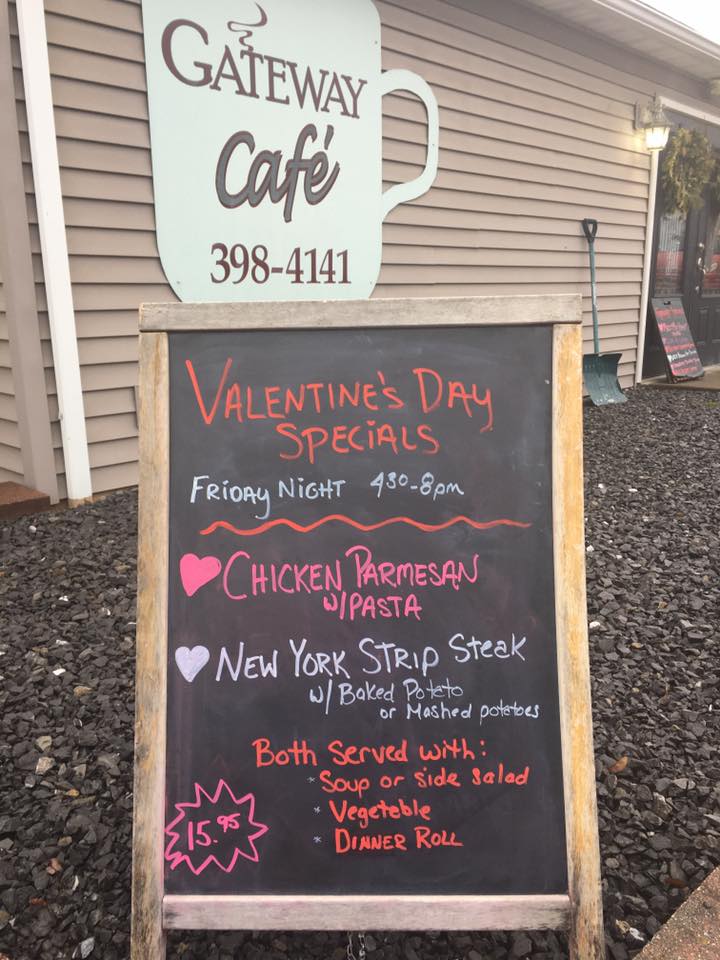 GATEWAY
Café
398-4141
VALENTINE'S DAY
SPECIALS
FRIDAY NIGHT 4³⁰-8pm
CHICKEN PARMESAN
W/PASTA
NEW YORK STRIP Steak
W/ Baked Potato
or Mashed potatoes
Both Served with:
* Soup or side salad
* Vegetable
* DINNER ROLL
15.⁹⁵